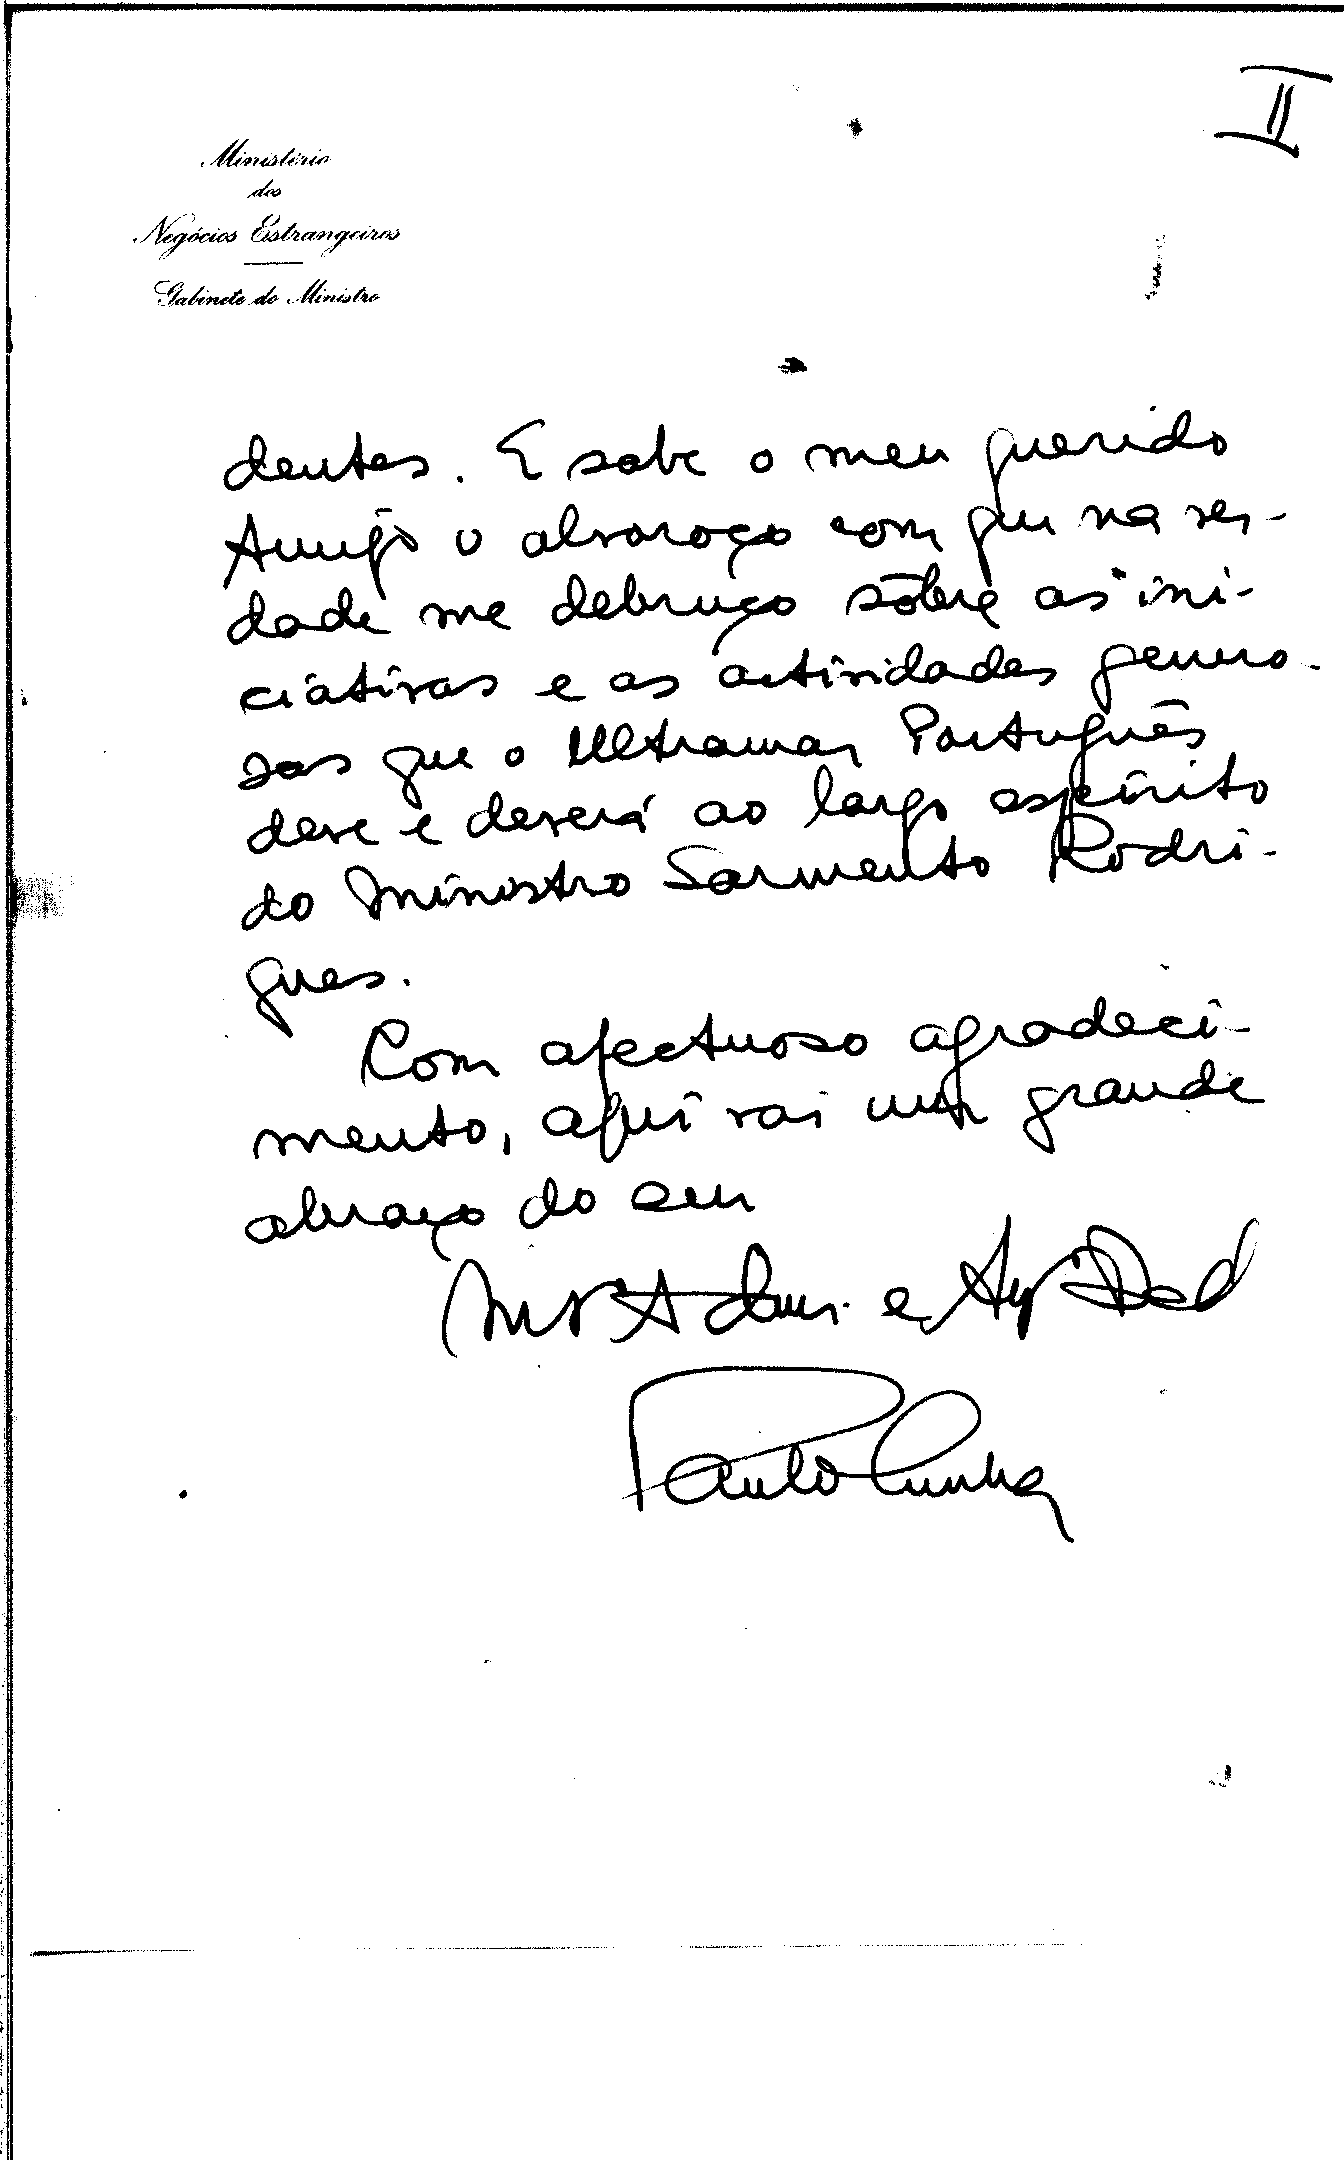 II
Ministério
dos
Negócios Estrangeiros
Gabinete do Ministro
dentes. E sabe o meu querido
Amigo o alvoroço com que na ver-
dade me debruço sôbre as ini-
ciativas e as actividades genero-
sas que o Ultramar Português
deve e deverá ao largo espírito
do Ministro Sarmento Rodri-
gues.
Com afectuoso agradeci-
mento, aqui vai um grande
abraço do seu
Mt Adm. e Ag Ded
Paulo Cunha